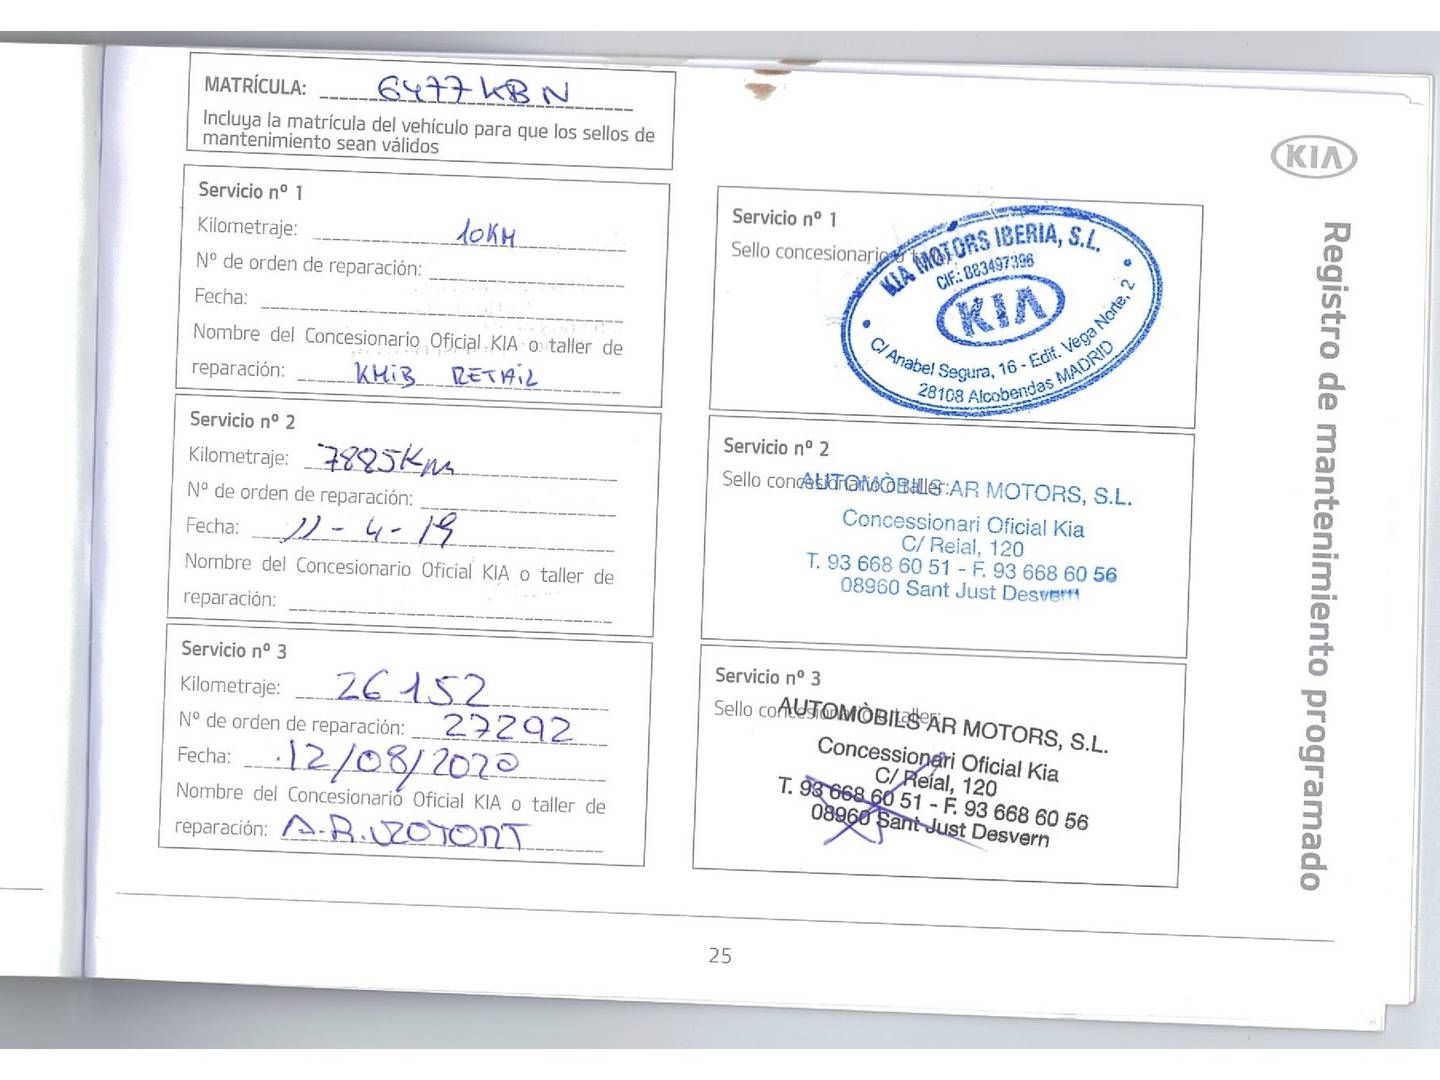 MATRÍCULA: 6477 KBN
Incluya la matrícula del vehículo para que los sellos de
mantenimiento sean válidos
Servicio nº 1
Kilometraje: 10KM
Nº de orden de reparación:
Fecha:
Nombre del Concesionario Oficial KIA o taller de
reparación: KMIB RETAIL
Servicio nº 2
Kilometraje: 7885Km
Nº de orden de reparación:
Fecha: 11-4-19
Nombre del Concesionario Oficial KIA o taller de
reparación:
Servicio nº 3
Kilometraje: 26152
Nº de orden de reparación: 27292
Fecha: 12/08/2020
Nombre del Concesionario Oficial KIA o taller de
reparación: A.R.
Servicio nº 1
Sello concesionario o taller:
KIA MOTORS IBERIA, S.L.
CIF.: B83497396
KIA
C/ Anabel Segura, 16 - Edif. Vega Norte, 2
28108 Alcobendas MADRID
Servicio nº 2
Sello concesionario o taller:
AUTOMÒBILS AR MOTORS, S.L.
Concessionari Oficial Kia
C/ Reial, 120
T. 93 668 60 51 - F. 93 668 60 56
08960 Sant Just Desvern
Servicio nº 3
Sello concesionario o taller:
AUTOMÒBILS AR MOTORS, S.L.
Concessionari Oficial Kia
C/ Reial, 120
T. 93 668 60 51 - F. 93 668 60 56
08960 Sant Just Desvern
KIA
Registro de mantenimiento programado
25